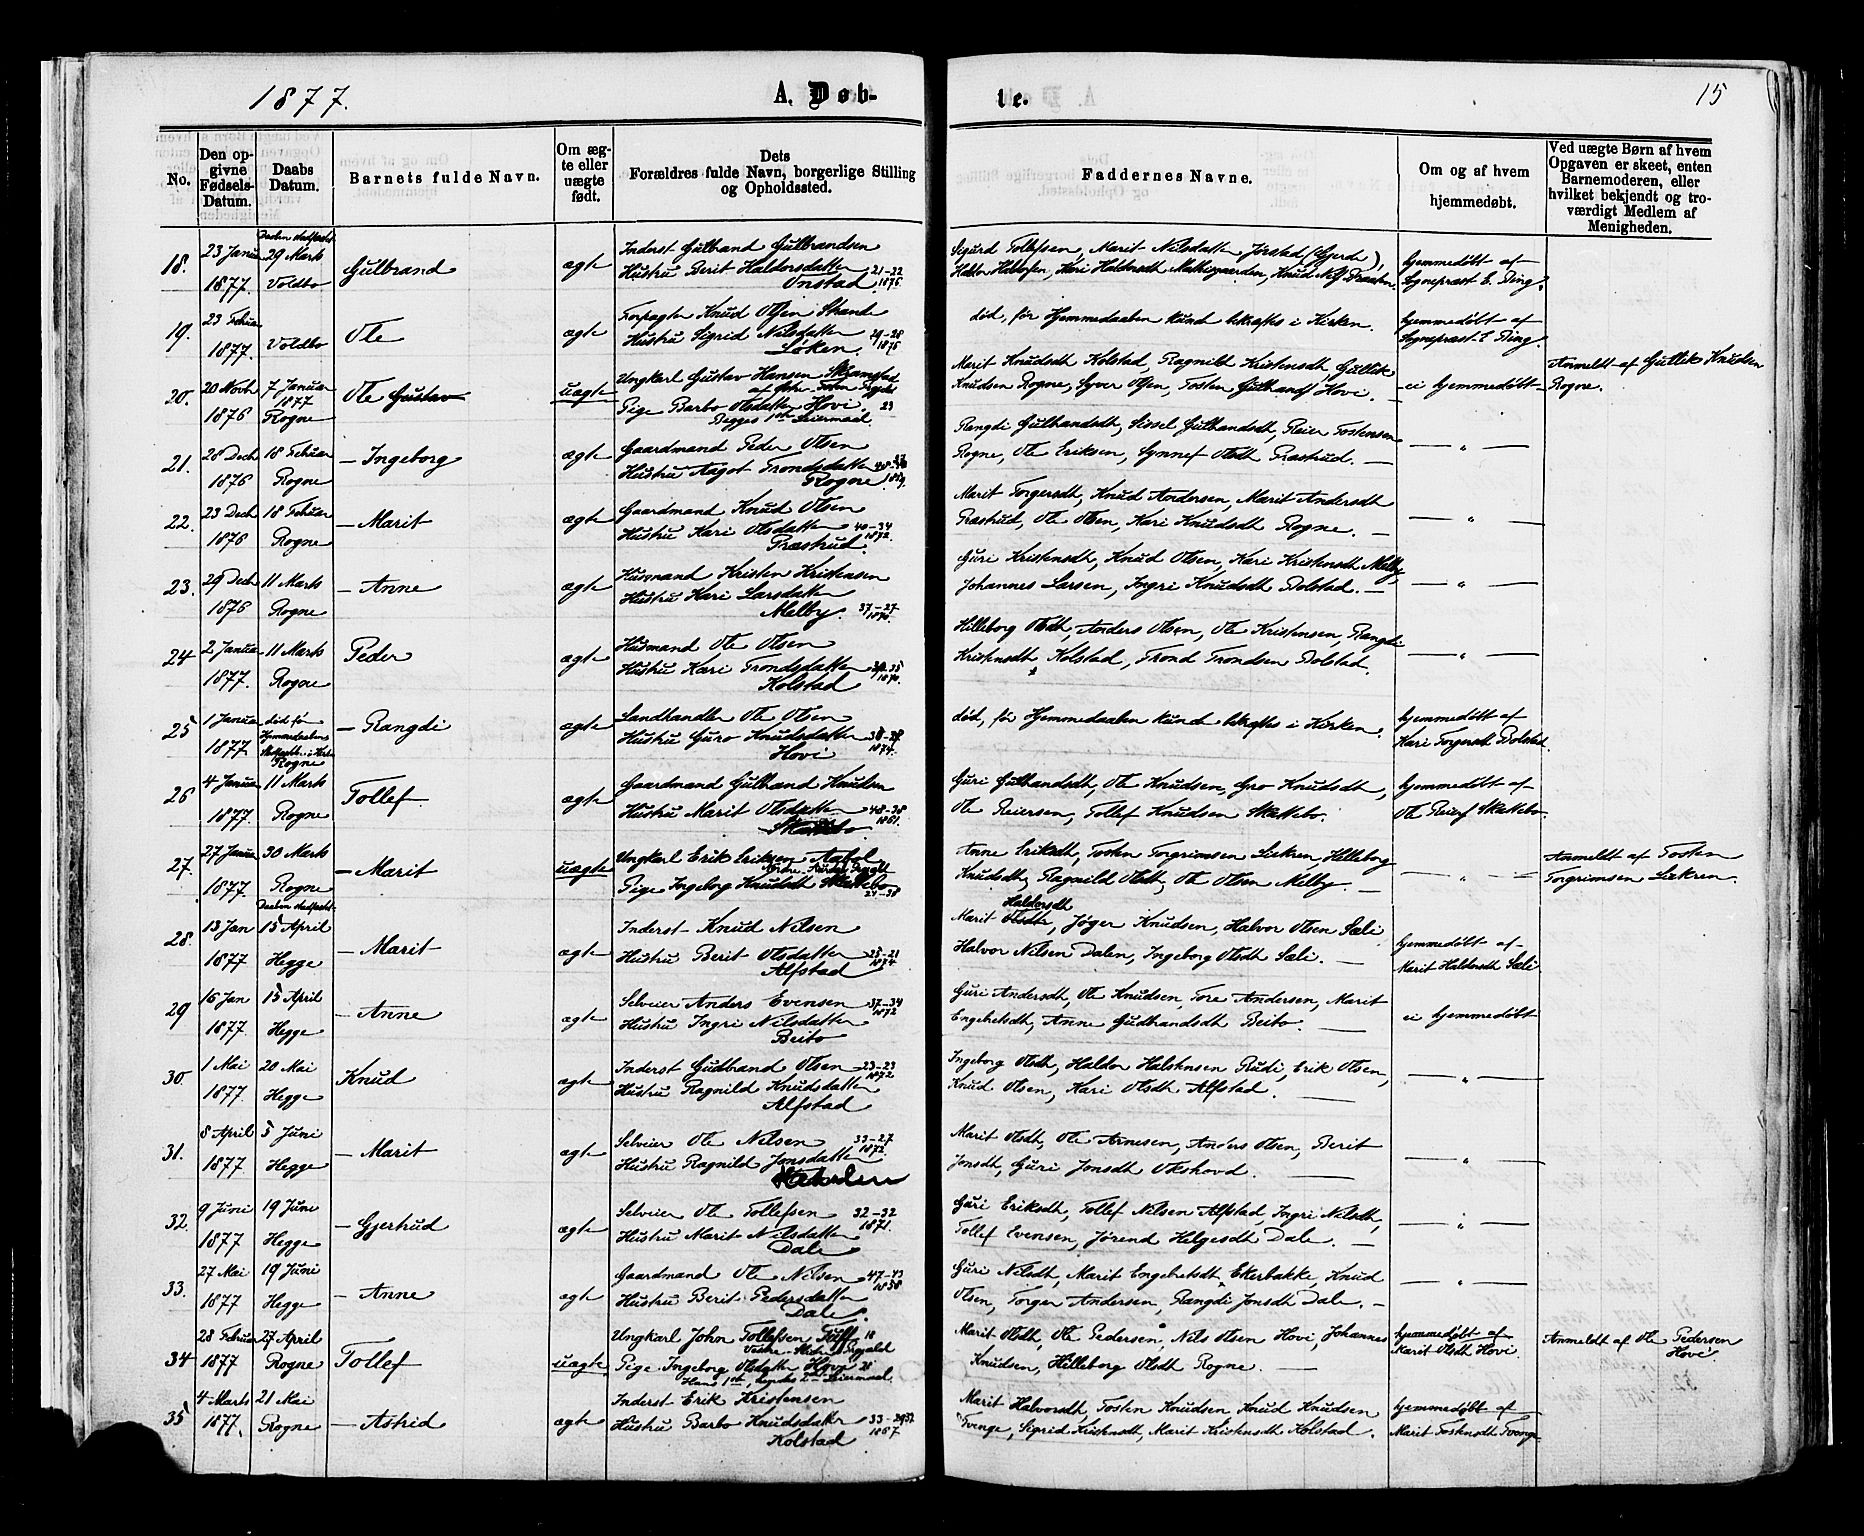 1877.
A. Døb-
te.
15
No.
Den op-
givne
Fødsels-
Datum.
Daabs
Datum.
Barnets fulde Navn.
Om æg-
te eller
uægte
født.
Dets
Forældres fulde Navn, borgerlige Stilling
og Opholdssted.
Faddernes Navne.
Om og af hvem
hjemmedøbt.
Ved uægte Børn af hvem
Opgaven er skeet, enten
Barnemoderen, eller
hvilket bekjendt og tro-
værdigt Medlem af
Menigheden.
18. 23 Janua 1877. 29 Marts Voldbo Gulbrand ægte
Inderst Gulbrand Gulbrandsen
Hustru Berit Haldorsdatter 21-22
Onstad 1876.
Sigurd Tollefsen, Marit Nilsdatter Jørstad (Gjerde),
hjemmedøbt af
Sognepræst E. Ping.
19. 23 Februa 1877. Voldbo Ole ægte
Forpagter Knud Olsen Strande
Hustru Sigrid Nilsdatter
Løken.
død, før Hjemmedaaben kunde bekræftes i Kirken.
hjemmedøbt af
Sognepræst E. Ping.
20. 20 Novbr 1876 7 Januar 1877 Rogne Ole Gustav uægte
Ungkarl Gustav Hansen Skramstad
Pige Barbo Olsdatter Hovi. 23
Begges 1ste Leiermaal.
Marit Knudsdt Kolstad, Ragnild Kristensdt, Gullik
Knudsen Rogne, Syver Olsen, Tosten Gulbrands Hovi.
ei hjemmedøbt
Anmeldt af Gullik Knudsen
Rogne.
21. 28 Decbr 1876 18 Februar Rogne - Ingeborg ægte
Gaardmand Peder Olsen
Hustru Aagot Trondsdatter
Rogne
Rangdi Gulbrandsdt, Sissel Gulbrandsdt, Reier Tostensen
Rogne, Ole Eriksen, Synnef Olsdt Præstrud.
— " —
22. 23 Decbr 1876 18 Februar Rogne - Marit ægte
Gaardmand Knud Olsen
Hustru Kari Olsdatter 40-34
Præstrud. 1872.
Marit Torgersdt, Knud Andersen, Marit Andersdt
Præstrud, Ole Olsen, Kari Knudsdt Rogne.
— " —
23. 29 Decbr 1876 11 Marts Rogne - Anne ægte
Husmand Kristen Kristensen
Hustru Kari Larsdatter
Melby. 37-27
1870.
Guri Kristensdt, Knud Olsen, Kari Kristensdt Melby,
Johannes Larsen, Ingri Knudsdt Bolstad.
— " —
24 2 Janua 1877. 11 Marts Rogne Peder ægte
Husmand Ole Olsen
Hustru Kari Trondsdatter
Kolstad 1870.
Hilleborg Olsdt, Anders Olsen, Ole Kristensen, Rangdi
Kristensdt Kolstad, Trond Trondsen Bolstad.
— " —
25 1 Janua 1877. død før Hjemmedaaben Rogne - Rangdi ægte
Landhandler Ole Olsen
Hustru Guro Knudsdatter
Hovi 1874.
død, før Hjemmedaaben kunde bekræftes i Kirken.
hjemmedøbt af
Kari Torgersdt Bolstad.
26 4 Janua 1877. 11 Marts Rogne Tollef ægte
Gaardmand Gulbrand Knudsen
Hustru Marit Olsdatter 48-38
Skattebo 1861.
Guri Gulbrandsdt, Ole Knudsen, Gro Knudsdt,
Ole Reiersen, Tollef Knudsen Skattebo.
hjemmedøbt af
Ole Reiers Skattebo.
27. 27 Janua 1877. 30 Marts Rogne - Marit uægte
Ungkarl Erik Eriksen Aabol
Pige Ingeborg Knudsdt Skattebo
Anne Eriksdt, Tosten Torgrimsen Liekren, Hilleborg
Knudsdt, Ragnild Olsdt, Ole Olsen Melby.
— " —
Anmeldt af Tosten
Torgrimsen Liekren.
28. 13 Jan 1877. 15 April Hegge - Marit ægte
Inderst Knud Nilsen
Hustru Berit Olsdatter 25-21
Alfstad 1874.
Haldorsdt
Marit Olsdt, Jøger Knudsen, Halvor Olsen Sæli
Halvor Nilsen Dalen, Ingeborg Olsdt Sæli.
hjemmedøbt af
Marit Haldorsdt Sæli
29 16 Jan 1877. 15 April Hegge - Anne ægte
Selveier Anders Evensen 37-34
Hustru Ingri Nilsdatter 1872
Beito
Guri Andersdt, Ole Knudsen, Tore Andersen, Marit
Engebretsdt, Anne Gudbrandsdt Beito.
ei hjemmedøbt
30. 1 Mai 1877. 20 Mai Hegge Knud ægte
Inderst Gudbrand Olsen 23-23
Hustru Ragnild Knudsdatter 1872
Alfstad
Ingeborg Olsdt, Haldor Halstensen Rudi, Erik Olsen,
Knud Olsen, Kari Olsdt Alfstad.
— " —
31. 8 April 1877. 3 Juni Hegge - Marit ægte
Selveier Ole Nilsen 33-27
Hustru Ragnild Jonsdatter 1872.
Marit Olsdt, Ole Arnesen, Anders Olsen, Berit
Jonsdt, Guri Jonsdt Okshovd.
— " —
32. 9 Juni 1877 19 Juni Hegge - Gjertrud ægte
Selveier Ole Tollefsen 32-32
Hustru Marit Nilsdatter 1871.
Dale
Guri Eriksdt, Tollef Nilsen Alfstad, Ingri Nilsdt,
Tollef Evensen, Jørend Helgesdt Dale.
— " —
33. 27 Mai 1877 19 Juni Hegge - Anne ægte
Gaardmand Ole Nilsen 47-43
Hustru Berit Pedersdatter 1858
Dale.
Guri Nilsdt, Marit Engebretsdt Ekerbakke, Knud
Olsen, Torger Andersen, Rangdi Jonsdt Dale.
— " —
34 28 Februar 1877 27 April Rogne Tollef uægte
Ungkarl John Tollefsen
Pige Ingeborg Olsdatter Hovi 28
Hans 1ste, hendes 2det Leiermaal.
Marit Olsdt, Ole Pedersen, Nils Olsen Hovi, Johannes
Knudsen, Hilleborg Olsdt Rogne.
hjemmedøbt af
Marit Olsdt Hovi.
Anmeldt af Ole Pedersen
Hovi.
35 4 Marts 1877. 21 Mai Rogne - Astrid ægte
Inderst Erik Kristensen
Hustru Barbo Knudsdatter
Kolstad 1867
Marit Halvorsdt, Tosten Knudsen Knud Knudsen
Tvenge, Sigrid Kristensdt, Marit Kristensdt Kolstad.
hjemmedøbt af
Marit Tostensdt Tvenge